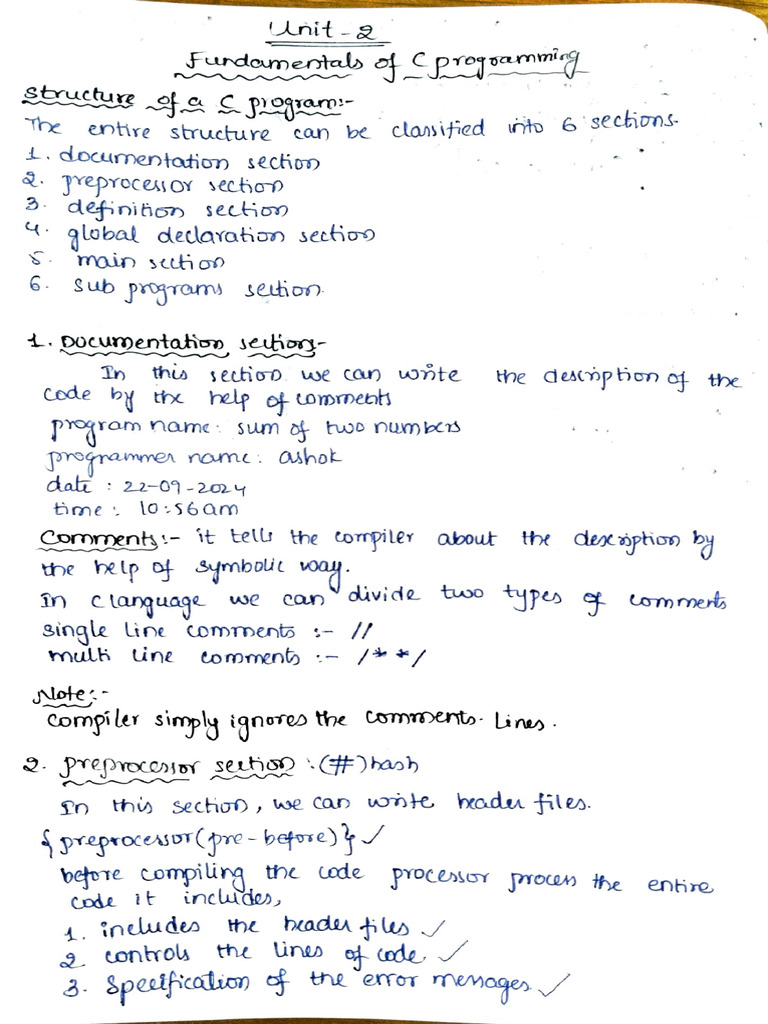 Unit - 2
Fundamentals of C programming
Structure of a C program:-
The entire structure can be classified into 6 sections.
1. documentation section
2. preprocessor section
3. definition section
4. global declaration section
5. main section
6. sub programs section.
1. Documentation section:-
In this section we can write the description of the
code by the help of comments
program name: sum of two numbers
programmer name: ashok
date : 22-09-2024
time : 10:56am
Comments:- it tells the compiler about the description by
the help of symbolic way.
In C language we can divide two types of comments
single line comments :- //
multi line comments :- /* */
Note:-
compiler simply ignores the comments. Lines.
2. preprocessor section :(#)hash
In this section, we can write header files.
{preprocessor(pre-before)}✓
before compiling the code processor process the entire
code it includes,
1. includes the header files ✓
2. controls the lines of code. ✓
3. Specification of the error messages. ✓